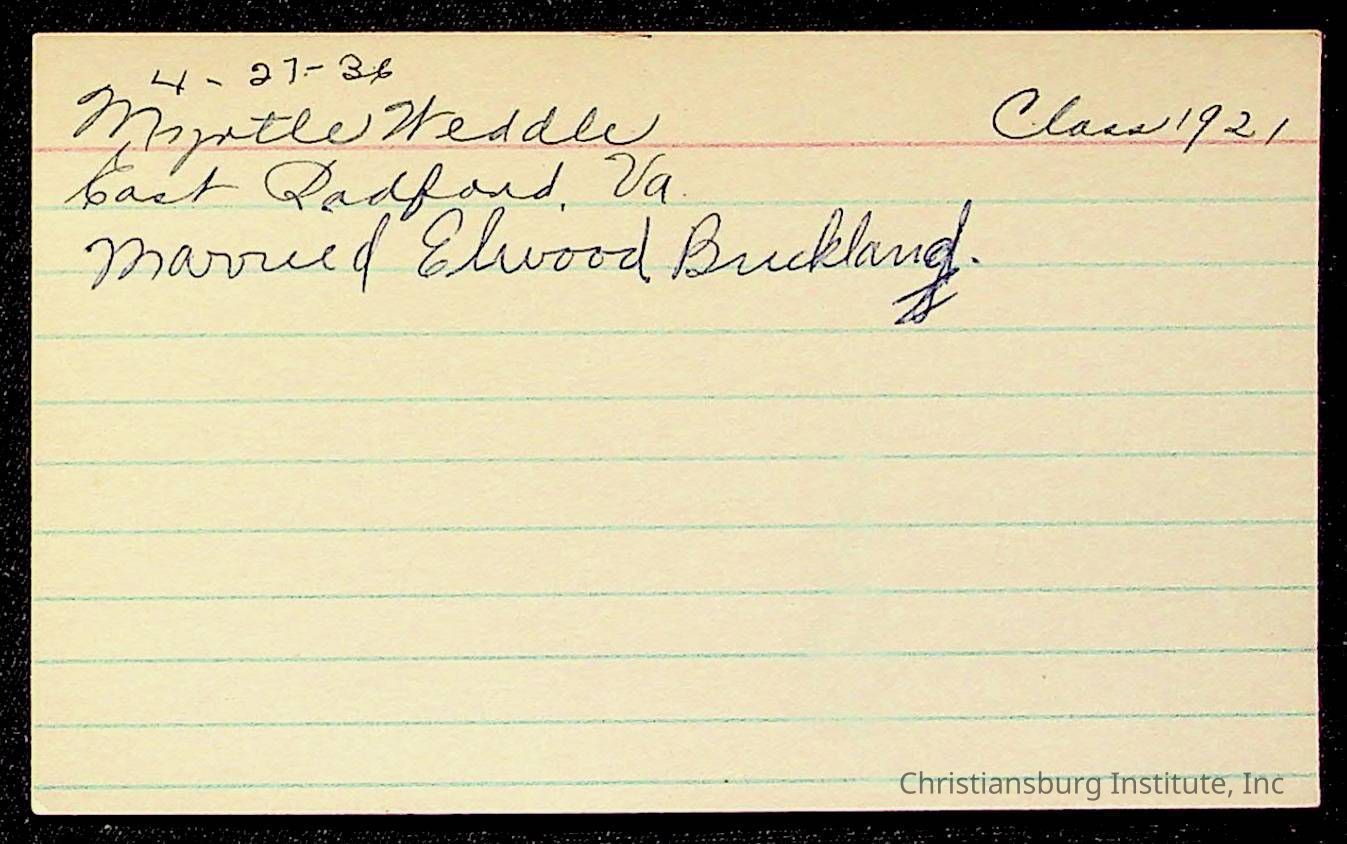 4-27-36
Myrtle Weddle Class 1921
East Radford, Va.
Married Elwood
Christiansburg Institute, Inc